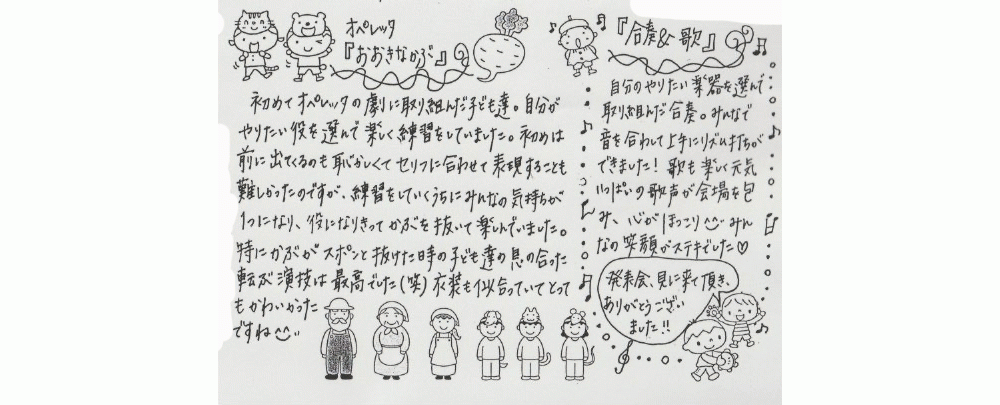 オペレッタ
『おおきなかぶ』
初めてオペレッタの劇に取り組んだ子ども達。自分が
やりたい役を選んで楽しく練習をしていました。初めは
前に出てくるのも恥ずかしくてセリフに合わせて表現することも
難しかったのですが、練習をしていくうちにみんなの気持ちが
1つになり、役になりきってかぶを抜いて楽しんでいました。
特にかぶがスポンと抜けた時の子ども達の息の合った
転ぶ演技は最高でした(笑)衣装も似合っていてとって
もかわいかった
ですね
『合奏&歌』
自分のやりたい楽器を選んで
取り組んだ合奏。みんなで
音を合わせて上手にリズム打ちが
できました！歌も楽しく元気
いっぱいの歌声が会場を包
み、心がほっこり みん
なの笑顔がステキでした♡
発表会、見に来て頂き、
ありがとうござい
ました!!